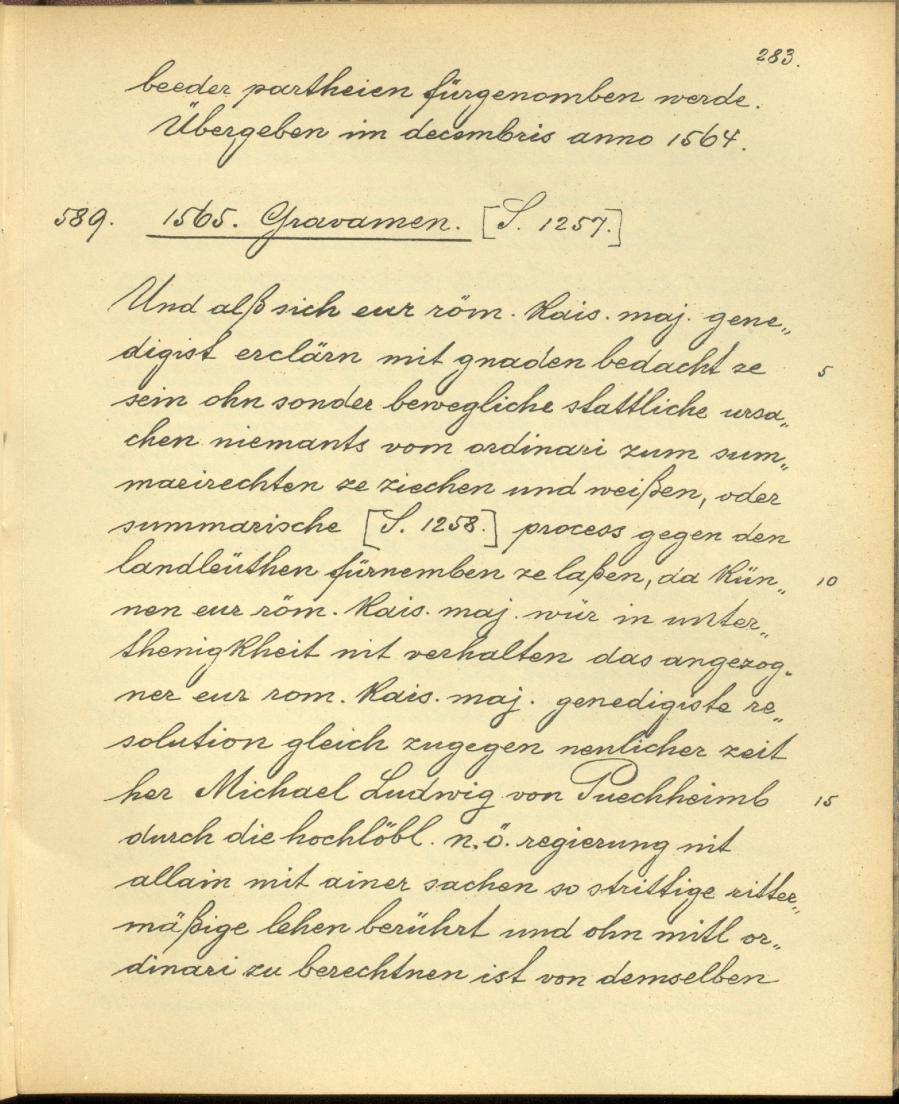 283.
beeder partheien fürgenomben werde.
Übergeben im decembris anno 1564.
589. 1565. Gravamen. [S. 1257.]
Und alß sich eur röm. Kais. maj. gene„
digist erclärn mit gnaden bedacht ze 5
sein ohn sonder bewegliche stattliche ursa„
chen niemants vom ordinari zum sum„
marirechten ze ziechen und weißen, oder
summarische [S. 1258.] process gegen den
landleüthen fürnemben ze laßen, da Kün„ 10
nen eur röm. Kais. maj. wür in unter„
thenigKheit nit verhalten das angezog„
ner eur rom. Kais. maj. genedigiste re„
solution gleich zugegen neulicher zeit
her Michael Ludwig von Puechheimb 15
durch die hochlöbl. n.ö. regierung nit
allain mit ainer sachen so strittige ritter„
mäßige lehen berührt und ohn mitl or„
dinari zu berechtnen ist von demselben